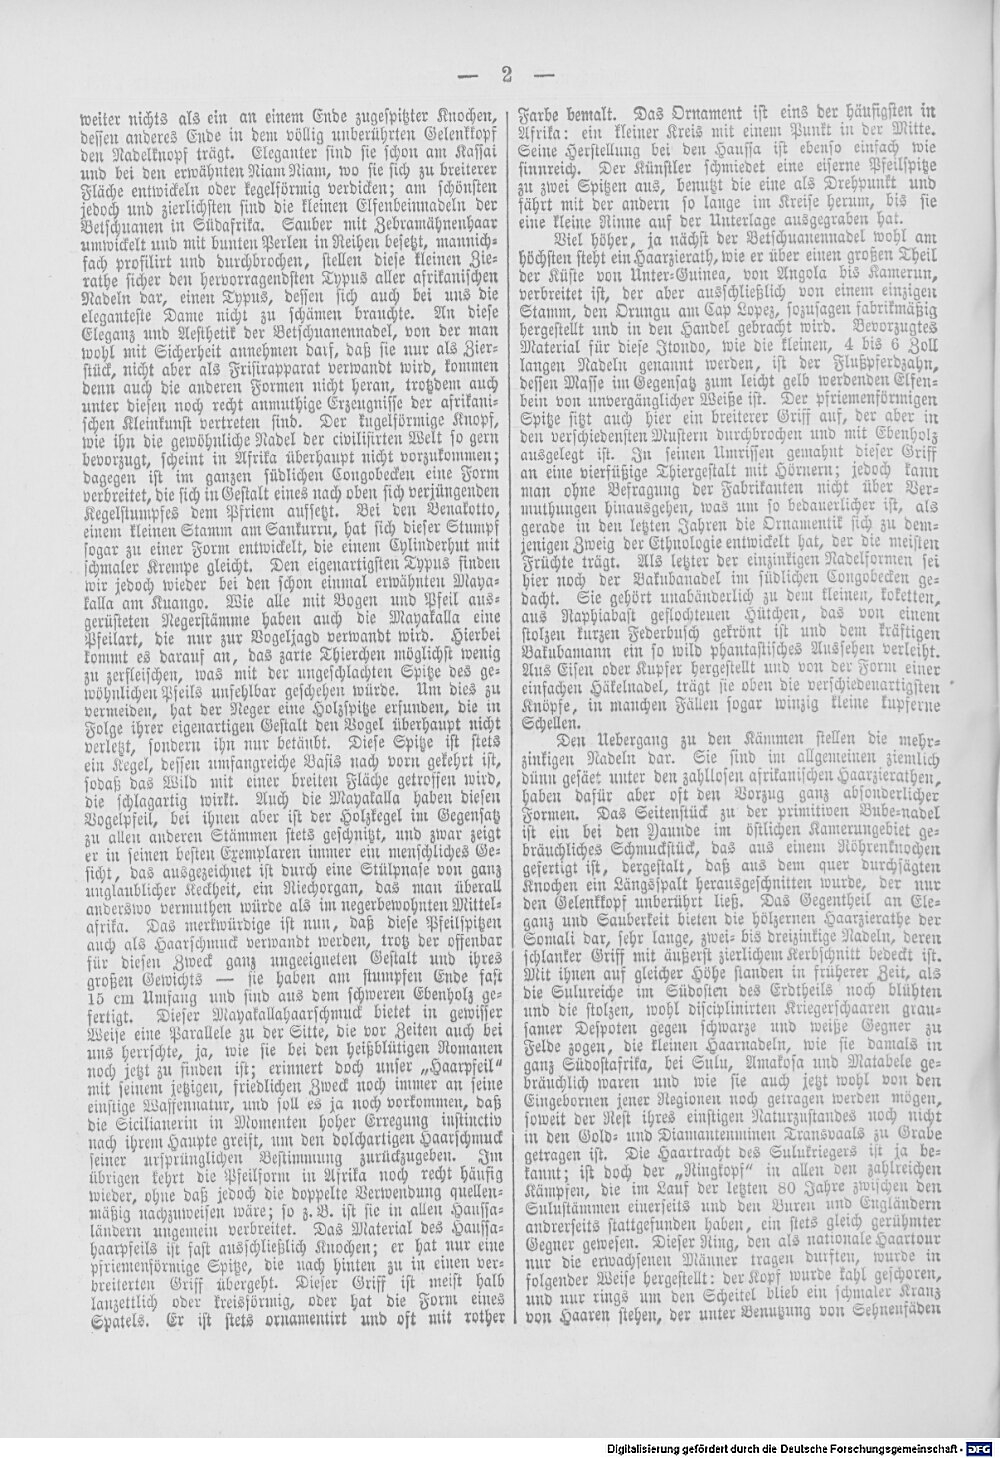 — 2 —
weiter nichts als ein an einem Ende zugespitzter Knochen,
dessen anderes Ende in dem völlig unberührten Gelenkkopf
den Nadelknopf trägt. Eleganter sind sie schon am Kassai
und bei den erwähnten Niam Niam, wo sie sich zu breiterer
Fläche entwickeln oder kegelförmig verdicken; am schönsten
jedoch und zierlichsten sind die kleinen Elfenbeinnadeln der
Betschuanen in Südafrika. Sauber mit Zebramähnenhaar
umwickelt und mit bunten Perlen in Reihen besetzt, mannich-
fach profilirt und durchbrochen, stellen diese kleinen Zie-
rathe sicher den hervorragendsten Typus aller afrikanischen
Nadeln dar, einen Typus, dessen sich auch bei uns die
eleganteste Dame nicht zu schämen brauchte. An diese
Eleganz und Aesthetik der Betschuanennadel, von der man
wohl mit Sicherheit annehmen darf, daß sie nur als Zier-
stück, nicht aber als Frisirapparat verwandt wird, kommen
denn auch die anderen Formen nicht heran, trotzdem auch
unter diesen noch recht anmuthige Erzeugnisse der afrikani-
schen Kleinkunst vertreten sind. Der kugelförmige Knopf,
wie ihn die gewöhnliche Nadel der civilisirten Welt so gern
bevorzugt, scheint in Afrika überhaupt nicht vorzukommen;
dagegen ist im ganzen südlichen Congobecken eine Form
verbreitet, die sich in Gestalt eines nach oben sich verjüngenden
Kegelstumpfes dem Pfriem aufsetzt. Bei den Benakotto,
einem kleinen Stamm am Sankurru, hat sich dieser Stumpf
sogar zu einer Form entwickelt, die einem Cylinderhut mit
schmaler Krempe gleicht. Den eigenartigsten Typus finden
wir jedoch wieder bei den schon einmal erwähnten Maya-
kalla am Kuango. Wie alle mit Bogen und Pfeil aus-
gerüsteten Negerstämme haben auch die Mayakalla eine
Pfeilart, die nur zur Vogeljagd verwandt wird. Hierbei
kommt es darauf an, das zarte Thierchen möglichst wenig
zu zerfleischen, was mit der ungeschlachten Spitze des ge-
wöhnlichen Pfeils unfehlbar geschehen würde. Um dies zu
vermeiden, hat der Neger eine Holzspitze erfunden, die in
Folge ihrer eigenartigen Gestalt den Vogel überhaupt nicht
verletzt, sondern ihn nur betäubt. Diese Spitze ist stets
ein Kegel, dessen umfangreiche Basis nach vorn gekehrt ist,
sodaß das Wild mit einer breiten Fläche getroffen wird,
die schlagartig wirkt. Auch die Mayakalla haben diesen
Vogelpfeil, bei ihnen aber ist der Holzkegel im Gegensatz
zu allen anderen Stämmen stets geschnitzt, und zwar zeigt
er in seinen besten Exemplaren immer ein menschliches Ge-
sicht, das ausgezeichnet ist durch eine Stülpnase von ganz
unglaublicher Keckheit, ein Riechorgan, das man überall
anderswo vermuthen würde als im negerbewohnten Mittel-
afrika. Das merkwürdige ist nun, daß diese Pfeilspitzen
auch als Haarschmuck verwandt werden, trotz der offenbar
für diesen Zweck ganz ungeeigneten Gestalt und ihres
großen Gewichts — sie haben am stumpfen Ende fast
15 cm Umfang und sind aus dem schweren Ebenholz ge-
fertigt. Dieser Mayakallahaarschmuck bietet in gewisser
Weise eine Parallele zu der Sitte, die vor Zeiten auch bei
uns herrschte, ja, wie sie bei den heißblütigen Romanen
noch jetzt zu finden ist; erinnert doch unser „Haarpfeil“
mit seinem jetzigen, friedlichen Zweck noch immer an seine
einstige Waffennatur, und soll es ja noch vorkommen, daß
die Sicilianerin in Momenten hoher Erregung instinctiv
nach ihrem Haupte greift, um den dolchartigen Haarschmuck
seiner ursprünglichen Bestimmung zurückzugeben. Im
übrigen kehrt die Pfeilform in Afrika noch recht häufig
wieder, ohne daß jedoch die doppelte Verwendung quellen-
mäßig nachzuweisen wäre; so z. B. ist sie in allen Haussa-
ländern ungemein verbreitet. Das Material des Haussa-
haarpfeils ist fast ausschließlich Knochen; er hat nur eine
pfriemenförmige Spitze, die nach hinten zu in einen ver-
breiterten Griff übergeht. Dieser Griff ist meist halb
lanzettlich oder kreisförmig, oder hat die Form eines
Spatels. Er ist stets ornamentirt und oft mit rother
Farbe bemalt. Das Ornament ist eins der häufigsten in
Afrika: ein kleiner Kreis mit einem Punkt in der Mitte.
Seine Herstellung bei den Haussa ist ebenso einfach wie
sinnreich. Der Künstler schmiedet eine eiserne Pfeilspitze
zu zwei Spitzen aus, benutzt die eine als Drehpunkt und
fährt mit der andern so lange im Kreise herum, bis sie
eine kleine Rinne auf der Unterlage ausgegraben hat.
Viel höher, ja nächst der Betschuanennadel wohl am
höchsten steht ein Haarzierath, wie er über einen großen Theil
der Küste von Unter-Guinea, von Angola bis Kamerun,
verbreitet ist, der aber ausschließlich von einem einzigen
Stamm, den Orungu am Cap Lopez, sozusagen fabrikmäßig
hergestellt und in den Handel gebracht wird. Bevorzugtes
Material für diese Itondo, wie die kleinen, 4 bis 6 Zoll
langen Nadeln genannt werden, ist der Flußpferdzahn,
dessen Masse im Gegensatz zum leicht gelb werdenden Elfen-
bein von unvergänglicher Weiße ist. Der pfriemenförmigen
Spitze sitzt auch hier ein breiterer Griff auf, der aber in
den verschiedensten Mustern durchbrochen und mit Ebenholz
ausgelegt ist. In seinen Umrissen gemahnt dieser Griff
an eine vierfüßige Thiergestalt mit Hörnern; jedoch kann
man ohne Befragung der Fabrikanten nicht über Ver-
muthungen hinausgehen, was um so bedauerlicher ist, als
gerade in den letzten Jahren die Ornamentik sich zu dem-
jenigen Zweig der Ethnologie entwickelt hat, der die meisten
Früchte trägt. Als letzter der einzinkigen Nadelformen sei
hier noch der Bakubanadel im südlichen Congobecken ge-
dacht. Sie gehört unabänderlich zu dem kleinen, koketten,
aus Raphiabast geflochtenen Hütchen, das von einem
stolzen kurzen Federbusch gekrönt ist und dem kräftigen
Bakubamann ein so wild phantastisches Aussehen verleiht.
Aus Eisen oder Kupfer hergestellt und von der Form einer
einfachen Häkelnadel, trägt sie oben die verschiedenartigsten
Knöpfe, in manchen Fällen sogar winzig kleine kupferne
Schellen.
Den Uebergang zu den Kämmen stellen die mehr-
zinkigen Nadeln dar. Sie sind im allgemeinen ziemlich
dünn gesäet unter den zahllosen afrikanischen Haarzierathen,
haben dafür aber oft den Vorzug ganz absonderlicher
Formen. Das Seitenstück zu der primitiven Bube-nadel
ist ein bei den Yaunde im östlichen Kamerungebiet ge-
bräuchliches Schmuckstück, das aus einem Röhrenknochen
gefertigt ist, dergestalt, daß aus dem quer durchsägten
Knochen ein Längsspalt herausgeschnitten wurde, der nur
den Gelenkkopf unberührt ließ. Das Gegentheil an Ele-
ganz und Sauberkeit bieten die hölzernen Haarzierathe der
Somali dar, sehr lange, zwei- bis dreizinkige Nadeln, deren
schlanker Griff mit äußerst zierlichem Kerbschnitt bedeckt ist.
Mit ihnen auf gleicher Höhe standen in früherer Zeit, als
die Sulureiche im Südosten des Erdtheils noch blühten
und die stolzen, wohl disciplinirten Kriegerschaaren grau-
samer Despoten gegen schwarze und weiße Gegner zu
Felde zogen, die kleinen Haarnadeln, wie sie damals in
ganz Südostafrika, bei Sulu, Amakosa und Matabele ge-
bräuchlich waren und wie sie auch jetzt wohl von den
Eingebornen jener Regionen noch getragen werden mögen,
soweit der Rest ihres einstigen Naturzustandes noch nicht
in den Gold- und Diamantenminen Transvaals zu Grabe
getragen ist. Die Haartracht des Sulukriegers ist ja be-
kannt; ist doch der „Ringkopf“ in allen den zahlreichen
Kämpfen, die im Lauf der letzten 80 Jahre zwischen den
Sulustämmen einerseits und den Buren und Engländern
andrerseits stattgefunden haben, ein stets gleich gerühmter
Gegner gewesen. Dieser Ring, den als nationale Haartour
nur die erwachsenen Männer tragen durften, wurde in
folgender Weise hergestellt: der Kopf wurde kahl geschoren,
und nur rings um den Scheitel blieb ein schmaler Kranz
von Haaren stehen, der unter Benutzung von Sehnenfäden
Digitalisierung gefördert durch die Deutsche Forschungsgemeinschaft - DFG